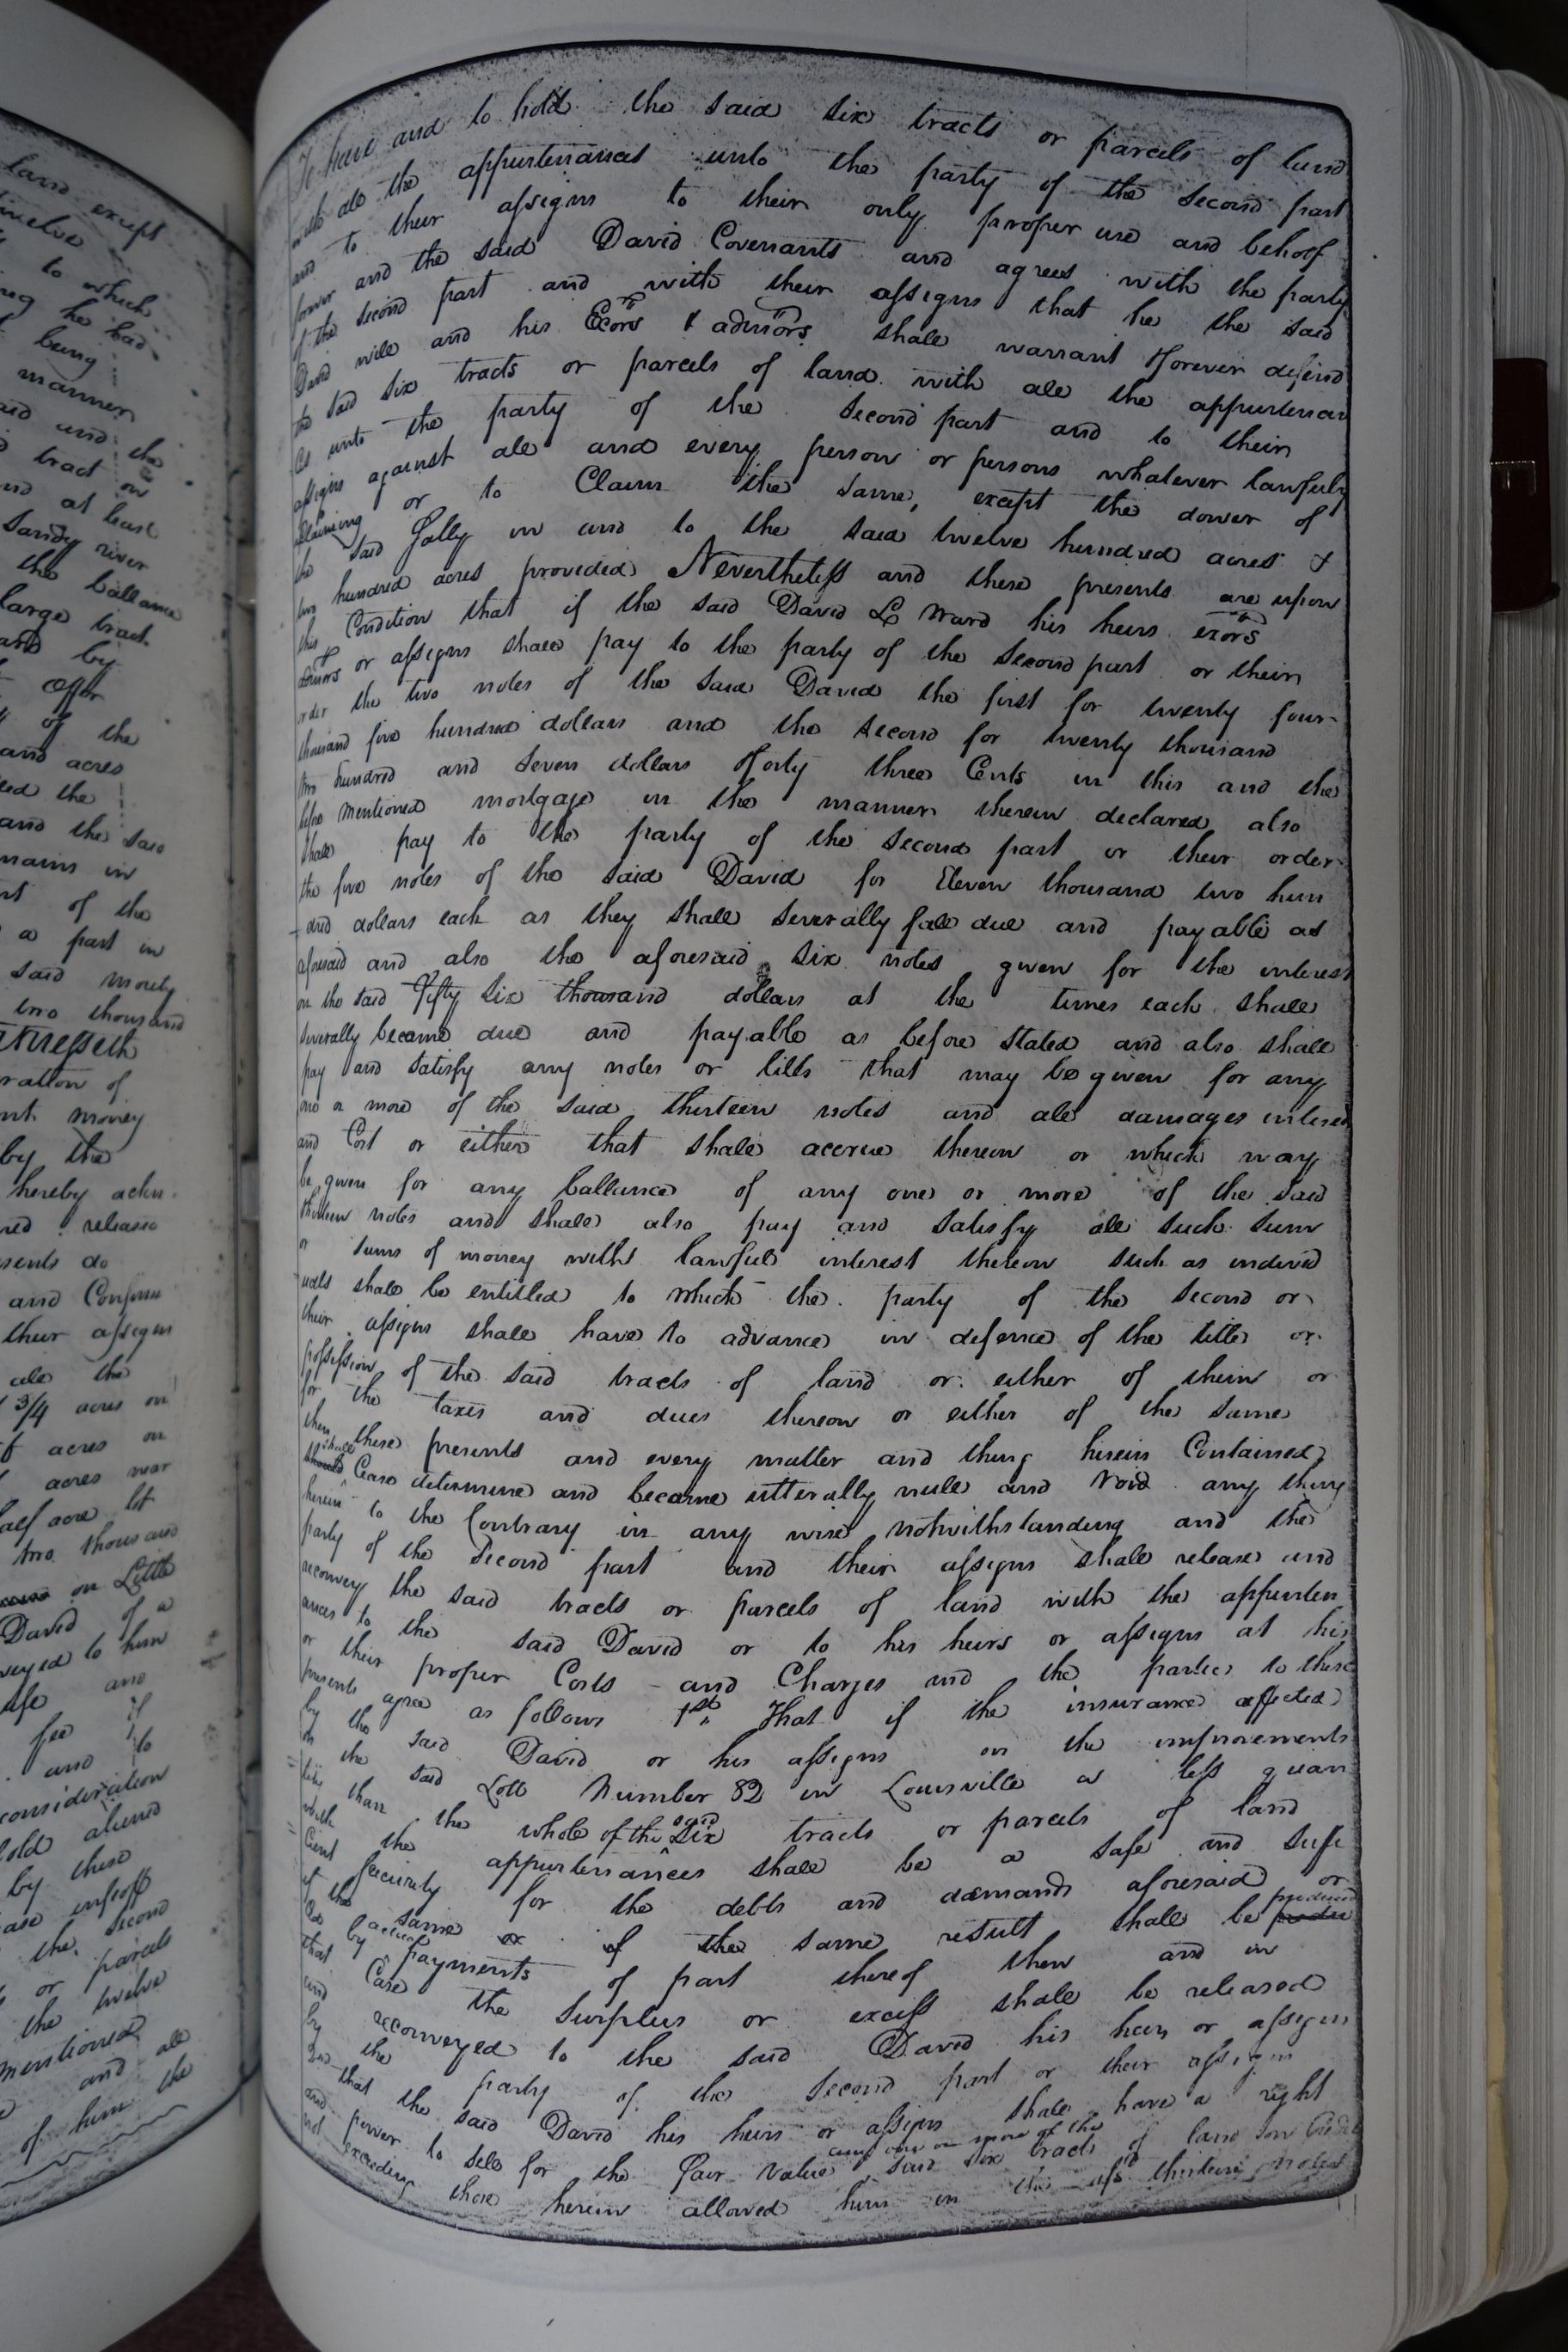 land except
twelve
to which
he had
being
manner
and the
tract on
at least
Sandy river
the ballance
large tract
and by
offer
of the
and acres
the
and the said
remains in
of the
a part in
said moiety
two thousand
Witnesseth
ration of
money
by the
hereby ackn
released
presents do
and Confirm
their assigns
all the
3/4 acres on
acres on
acres near
half acre lot
two thousand
on Little
David of a
veyed to him
and
fee if
and to
consideration
sold aliened
by these
enfeoff
the second
or parcels
the twelve
mentioned
and all
of him the
To have and to hold the said six tracts or parcels of land
with all the appurtenances unto the party of the second part
and to their assigns to their only proper use and behoof
forever and the said David Covenants and agrees with the party
of the second part and with their assigns that he the said
David will and his Ecors & admors shall warrant & forever defend
the said six tracts or parcels of land with all the appurtenan
ces unto the party of the second part and to their
assigns against all and every person or persons whatever lawfully
claiming or to Claim the same, except the dower of
the said Sally in and to the said twelve hundred acres &
two hundred acres provided Nevertheless and these presents are upon
this Condition that if the said David L Ward his heirs exors
admors or assigns shall pay to the party of the second part or their
order the two notes of the said David the first for twenty four
thousand five hundred dollars and the second for twenty thousand
two hundred and seven dollars & forty three Cents in this and the
before mentioned mortgage in the manner therein declared also
shall pay to the party of the second part or their order
the five notes of the said David for Eleven thousand two hun
-dred dollars each as they shall severally fall due and payable as
aforesaid and also the aforesaid six notes given for the interest
on the said Fifty six thousand dollars at the times each shall
severally become due and payable as before stated and also shall
pay and satisfy any notes or bills that may be given for any
one or more of the said thirteen notes and all damages interest
and Cost or either that shall accrue thereon or which may
be given for any ballance of any one or more of the said
thirteen notes and shall also pay and satisfy all such sum
or sums of money with lawful interest thereon such as individ
uals shall be entitled to which the party of the second or
their assigns shall have to advance in defence of the title or
possession of the said tracts of land or either of them or
for the taxes and dues thereon or either of the same
then these presents and every matter and thing herein Contained
shall Cease determine and become utterally null and Void any thing
herein to the Contrary in any wise notwithstanding and the
party of the second part and their assigns shall release and
reconvey the said tracts or parcels of land with the appurten
ances to the said David or to his heirs or assigns at his
or their proper Costs and Charges and the parties to these
presents agree as follows 1st That if the insurance affected
by the said David or his assigns on the improvements
on the said Lott Number 82 in Louisville a less quan
tity than the whole of the said six tracts or parcels of land
with the appurtenances shall be a safe and suffi
cient security for the debts and demands aforesaid or
if the same or if the same result shall be produced
by actual payments of part thereof then and in
that Case the Surplus or excess shall be released
and reconveyed to the said David his heirs or assigns
by the party of the second part or their assigns
2nd that the said David his heirs or assigns shall have a right
and power to sell for the fair value any one or more of the said six tracts of land on Credit
not exceeding those herein allowed him in the thirteen notes